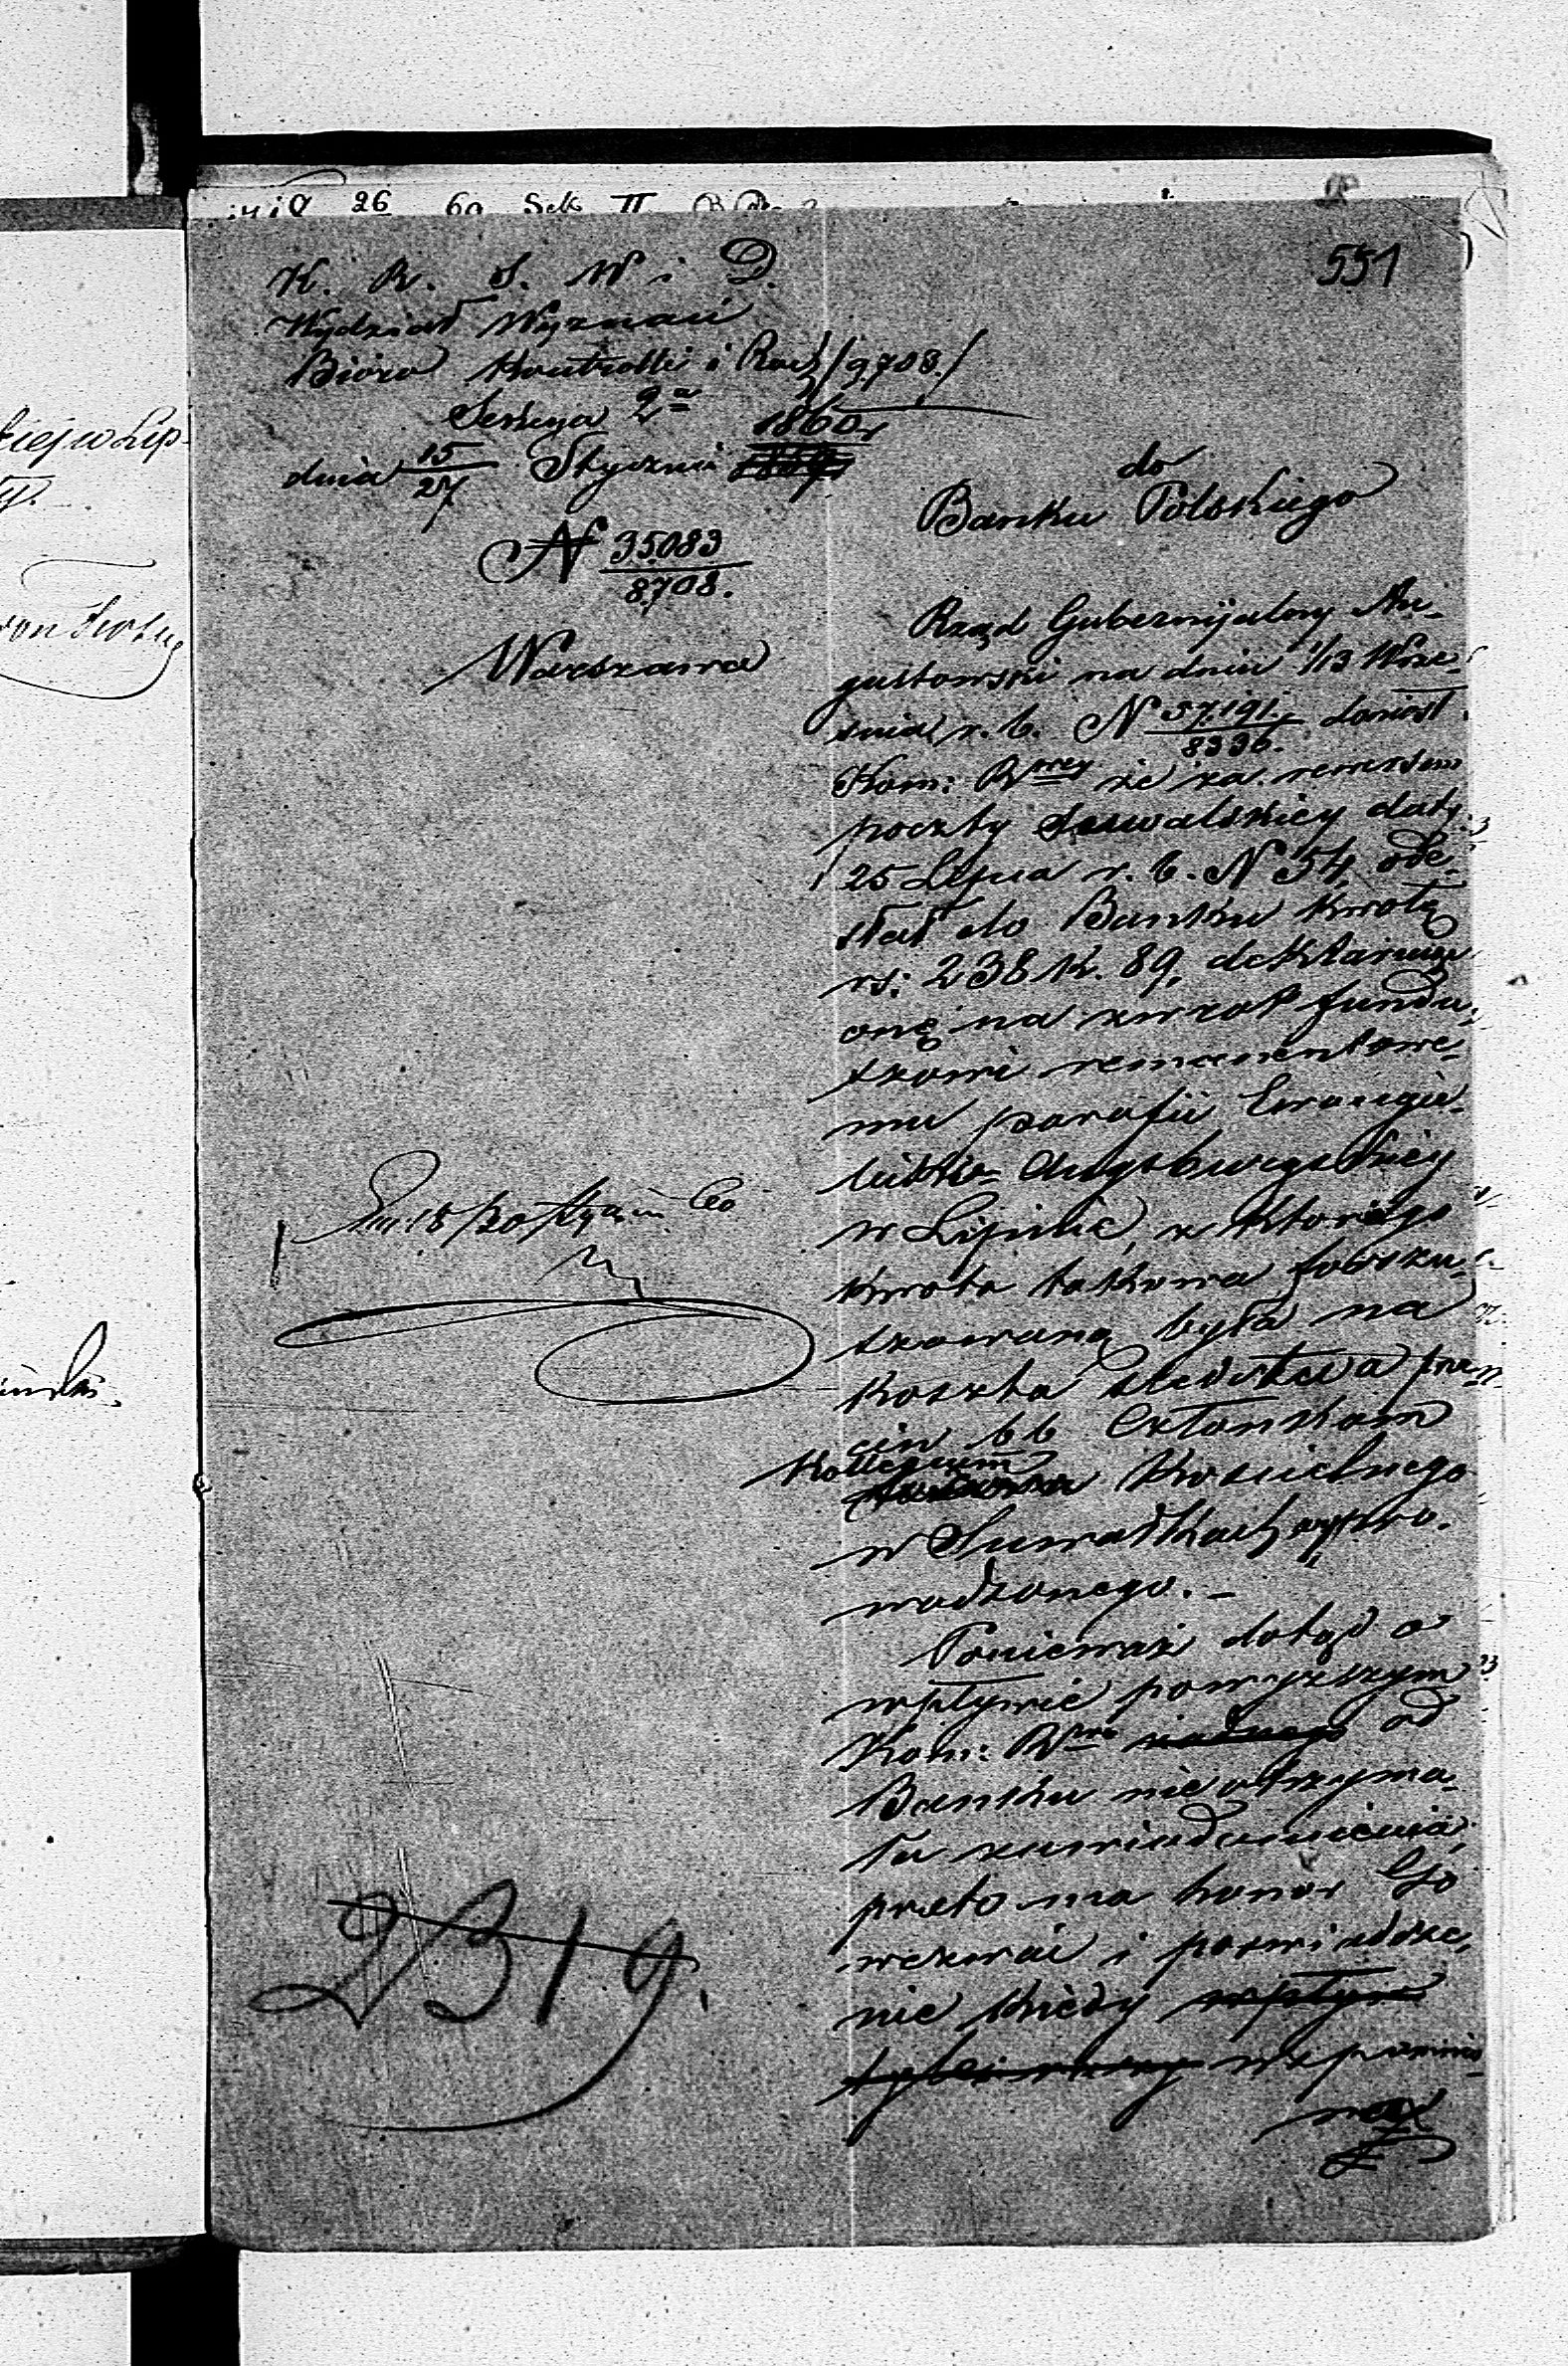 26 60 Sek II
551
K. R. S. W i D.
Wydział Wyznań
Bióro Kontrolli i Rach /9708./
Sekcya 2a
1860 r
dnia 15/27 Stycznia 1859
N 35083/8708.
Warszawa
do
Banku Polskiego
Rząd Gubernijalny Au-
gustowski na dniu 1/13 Wrze-
śnia r. b. N 57.191/8336. doniósł
Kom: Rwey że za rewersem
poczty Suwalskiey daty
25 Lipca r. b. N 54, ode-
słał do Banku kwotę
rs: 238 k. 89, deklarując
onę na zwrot fundu-
szowi remanentowe-
mu parafii Ewangie-
licko-Augsburgskiey
w Lipinie, z którego
kwota takowa forszu-
szowaną była na
koszta śledztwa prze-
ciw bb Członkom
Kollegium
Kościelnego
w Suwałkach wypro-
wadzonego. -
Ponieważ dotąd o
wpływie powyższym
Kom: Rwa żadnego od
Banku nie otrzyma-
ła zawiadomienia,
przeto ma honor Go
wezwać i
nie kiedy wpływ
wspomnio-
Dn. 18/30 Stycznia 60
2319.